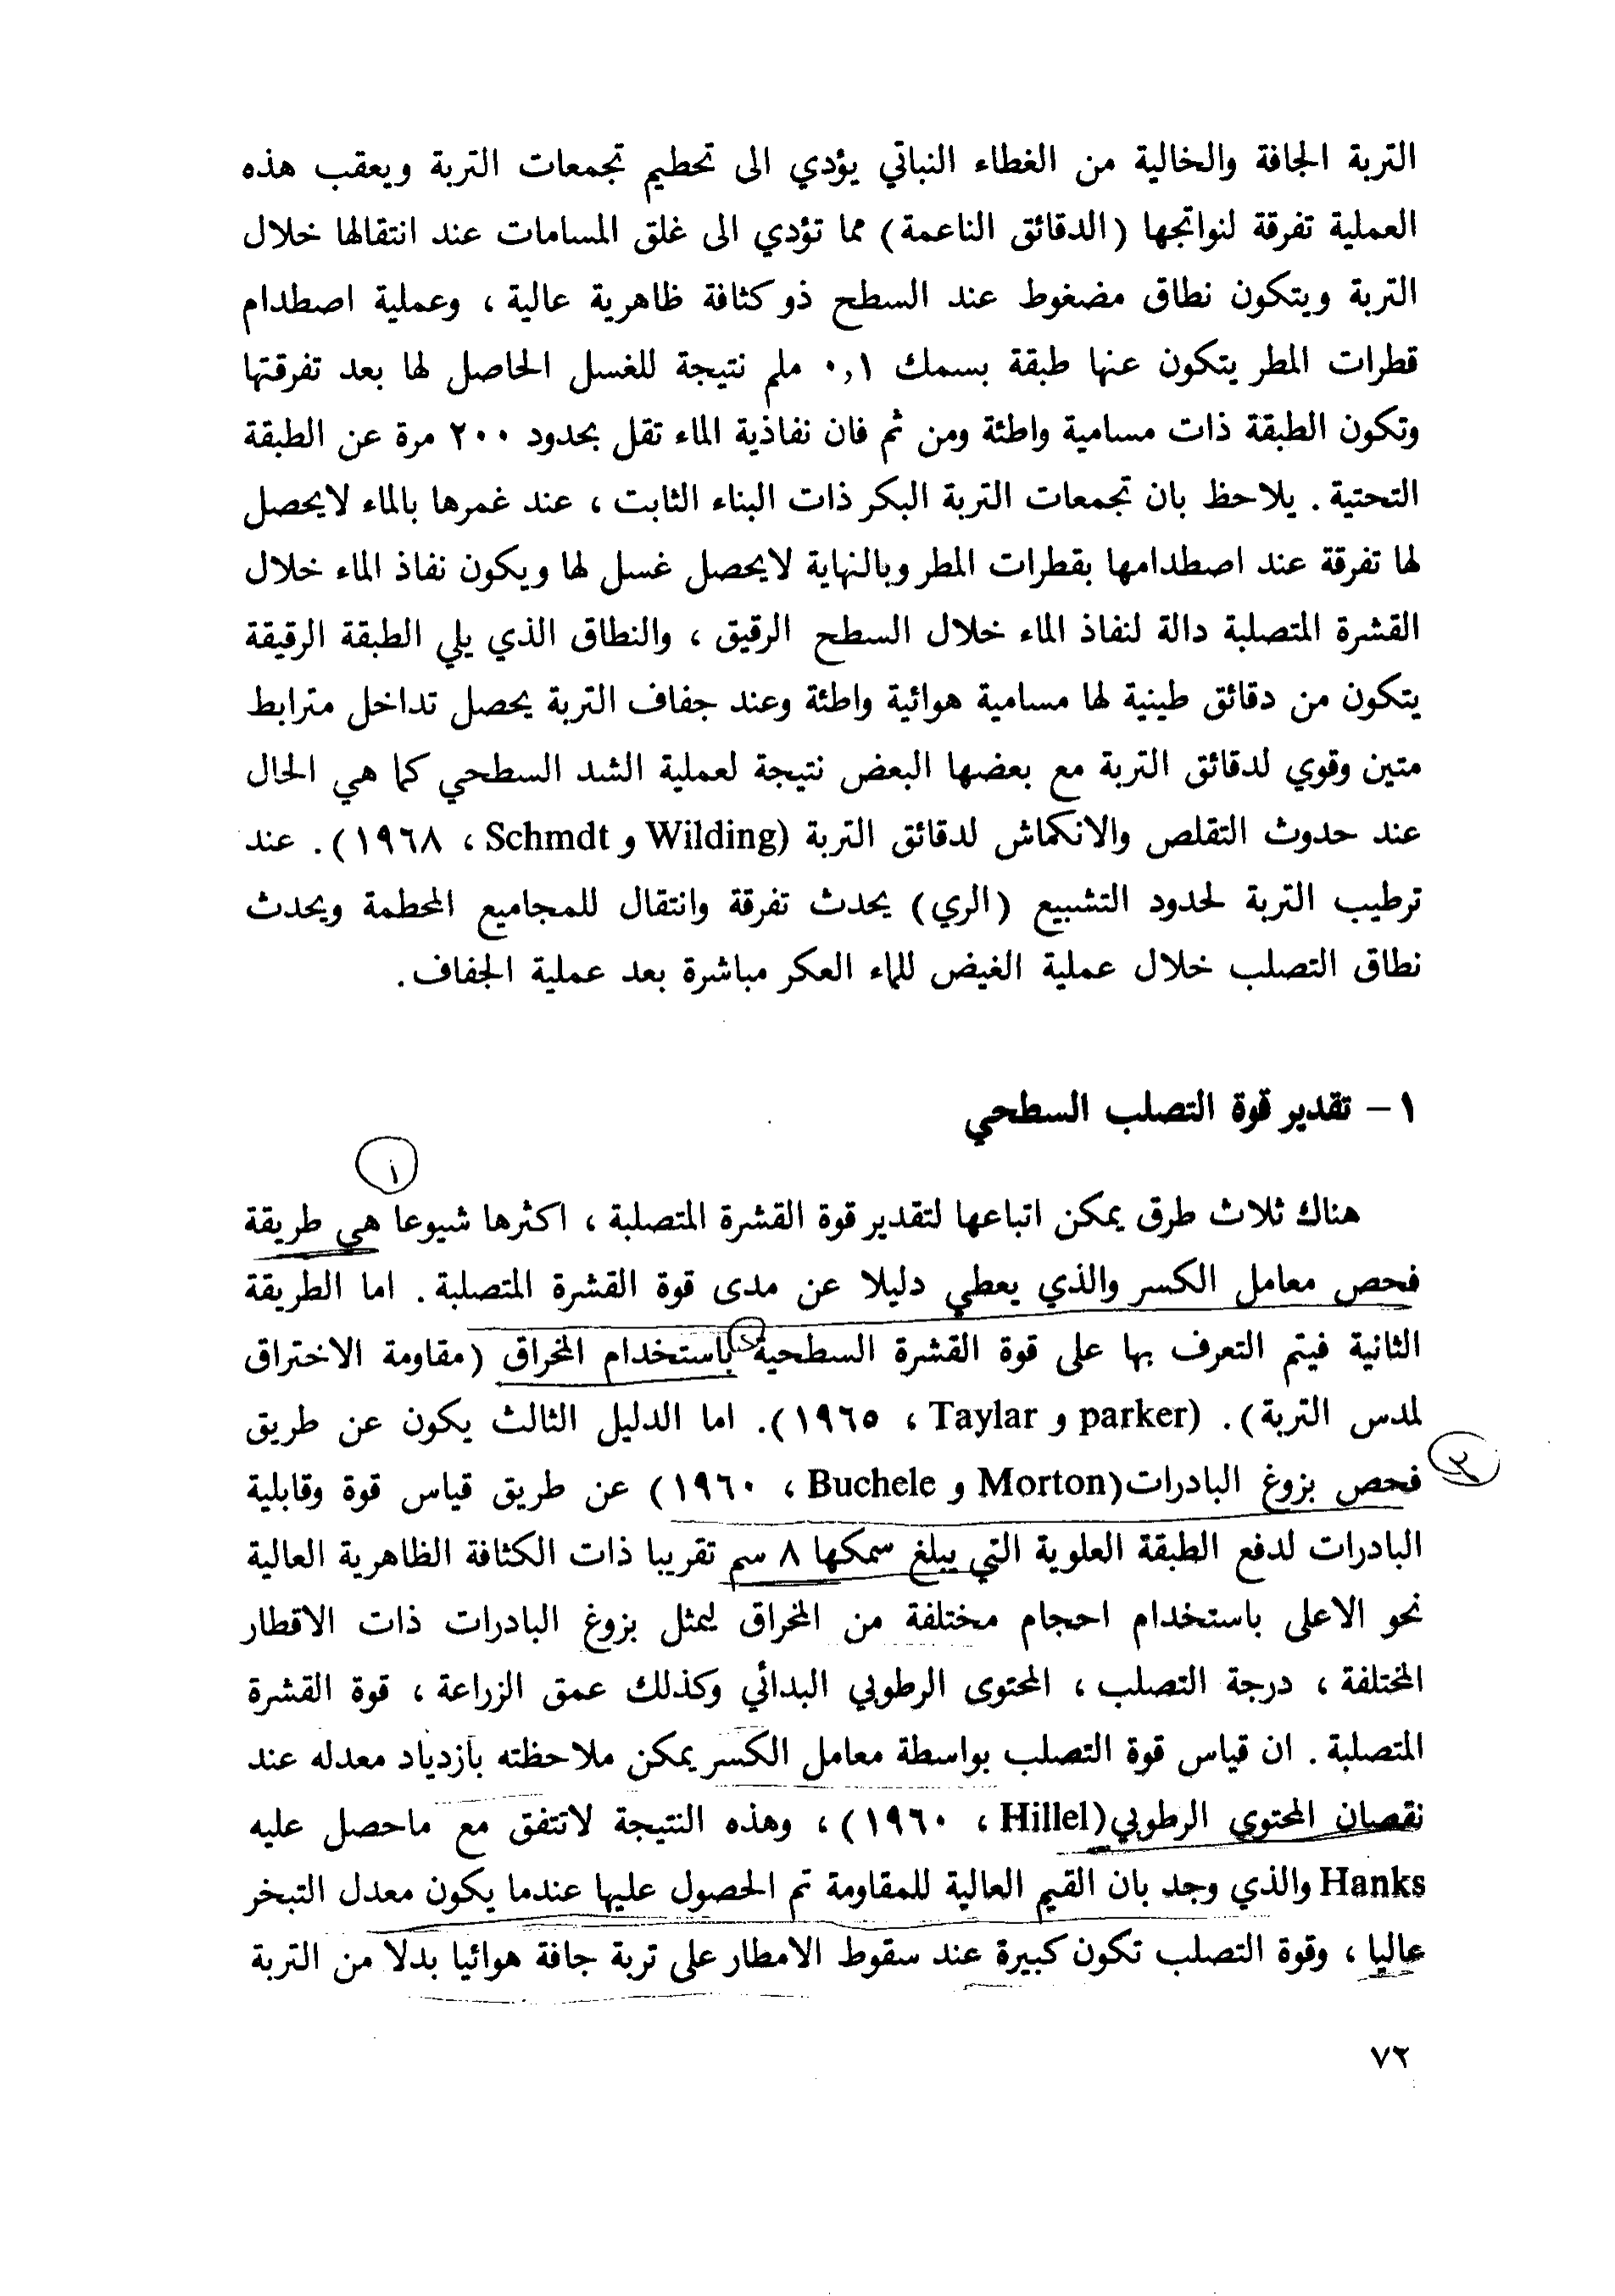 التربة الجافة والخالية من الغطاء النباتي يؤدي الى تحطيم تجمعات التربة ويعقب هذه
العملية تفرقة لنواتجها (الدقائق الناعمة) مما تؤدي الى غلق المسامات عند انتقالها خلال
التربة ويتكون نطاق مضغوط عند السطح ذو كثافة ظاهرية عالية ، وعملية اصطدام
قطرات المطر يتكون عنها طبقة بسمك ٠,١ ملم نتيجة للغسل الحاصل لها بعد تفرقتها
وتكون الطبقة ذات مسامية واطئة ومن ثم فان نفاذية الماء تقل بحدود ٢٠٠ مرة عن الطبقة
التحتية . يلاحظ بان تجمعات التربة البكر ذات البناء الثابت ، عند غمرها بالماء لايحصل
لها تفرقة عند اصطدامها بقطرات المطر وبالنهاية لايحصل غسل لها ويكون نفاذ الماء خلال
القشرة المتصلبة دالة لنفاذ الماء خلال السطح الرقيق ، والنطاق الذي يلي الطبقة الرقيقة
يتكون من دقائق طينية لها مسامية هوائية واطئة وعند جفاف التربة يحصل تداخل مترابط
متين وقوي لدقائق التربة مع بعضها البعض نتيجة لعملية الشد السطحي كما هي الحال
عند حدوث التقلص والانكماش لدقائق التربة (Wilding و Schmdt ، ١٩٦٨) . عند
ترطيب التربة لحدود التشبيع (الري) يحدث تفرقة وانتقال للمجاميع المحطمة ويحدث
نطاق التصلب خلال عملية الغيض للماء العكر مباشرة بعد عملية الجفاف .
١ – تقدير قوة التصلب السطحي
١
هناك ثلاث طرق يمكن اتباعها لتقدير قوة القشرة المتصلبة ، اكثرها شيوعا هي طريقة
فحص معامل الكسر والذي يعطي دليلا عن مدى قوة القشرة المتصلبة . اما الطريقة
الثانية فيتم التعرف بها على قوة القشرة السطحية باستخدام المخراق (مقاومة الاختراق
لمدس التربة) . (parker و Taylar ، ١٩٦٥). اما الدليل الثالث يكون عن طريق
٣
فحص بزوغ البادرات (Morton و Buchele ، ١٩٦٠) عن طريق قياس قوة وقابلية
البادرات لدفع الطبقة العلوية التي يبلغ سمكها ٨ سم تقريبا ذات الكثافة الظاهرية العالية
نحو الاعلى باستخدام احجام مختلفة من المخراق ليمثل بزوغ البادرات ذات الاقطار
المختلفة ، درجة التصلب ، المحتوى الرطوبي البدائي وكذلك عمق الزراعة ، قوة القشرة
المتصلبة . ان قياس قوة التصلب بواسطة معامل الكسر يمكن ملاحظته بازدياد معدله عند
نقصان المحتوي الرطوبي (Hillel ، ١٩٦٠) ، وهذه النتيجة لاتتفق مع ماحصل عليه
Hanks والذي وجد بان القيم العالية للمقاومة تم الحصول عليها عندما يكون معدل التبخر
عاليا ، وقوة التصلب تكون كبيرة عند سقوط الامطار على تربة جافة هوائيا بدلا من التربة
٧٢